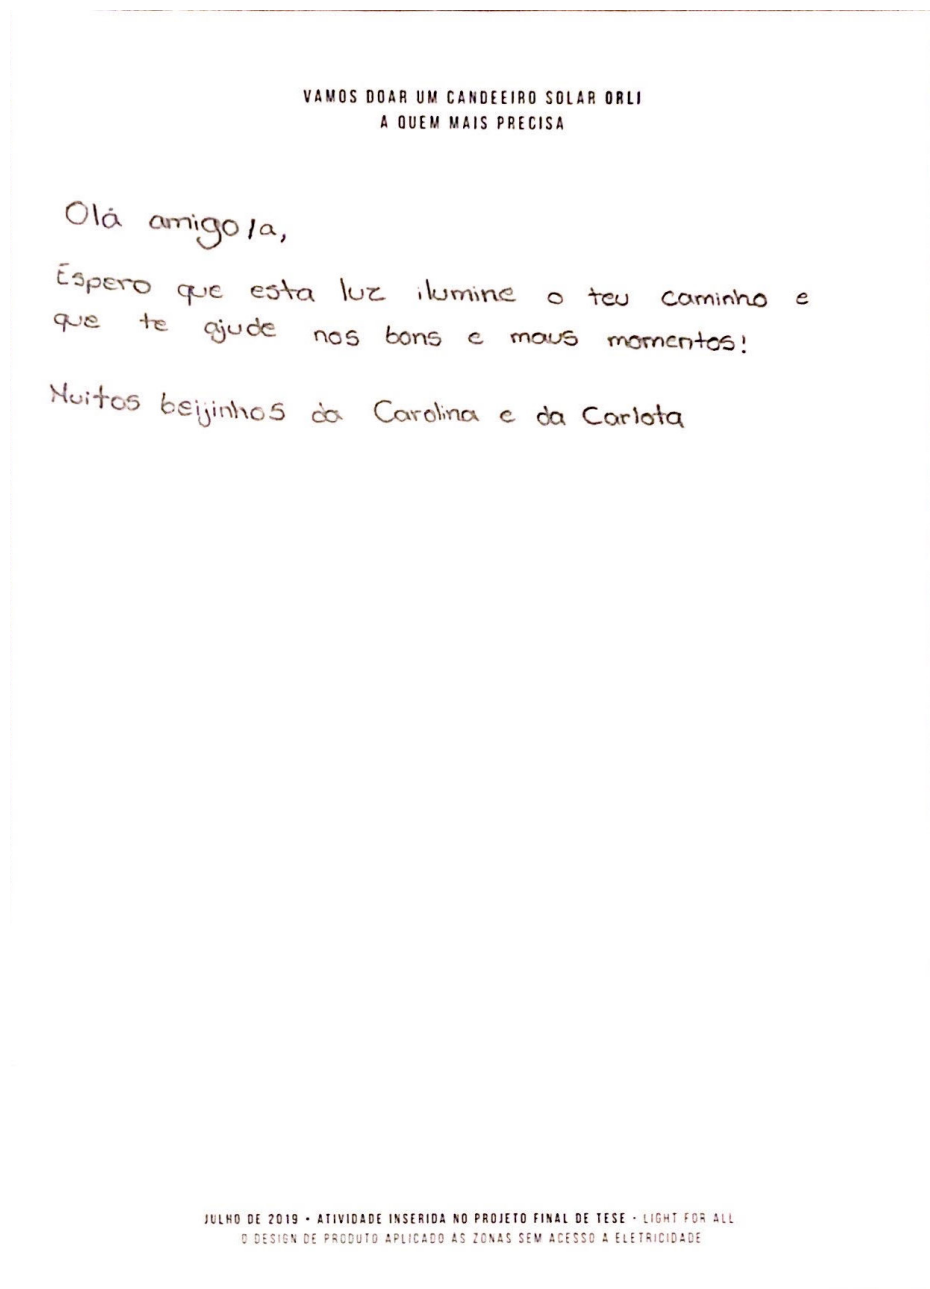 VAMOS DOAR UM CANDEEIRO SOLAR ORLI
A QUEM MAIS PRECISA
Olá amigo/a,
Espero que esta luz ilumine o teu caminho e
que te ajude nos bons e maus momentos!
Muitos beijinhos da Carolina e da Carlota
JULHO DE 2019 • ATIVIDADE INSERIDA NO PROJETO FINAL DE TESE - LIGHT FOR ALL
O DESIGN DE PRODUTO APLICADO AS ZONAS SEM ACESSO A ELETRICIDADE